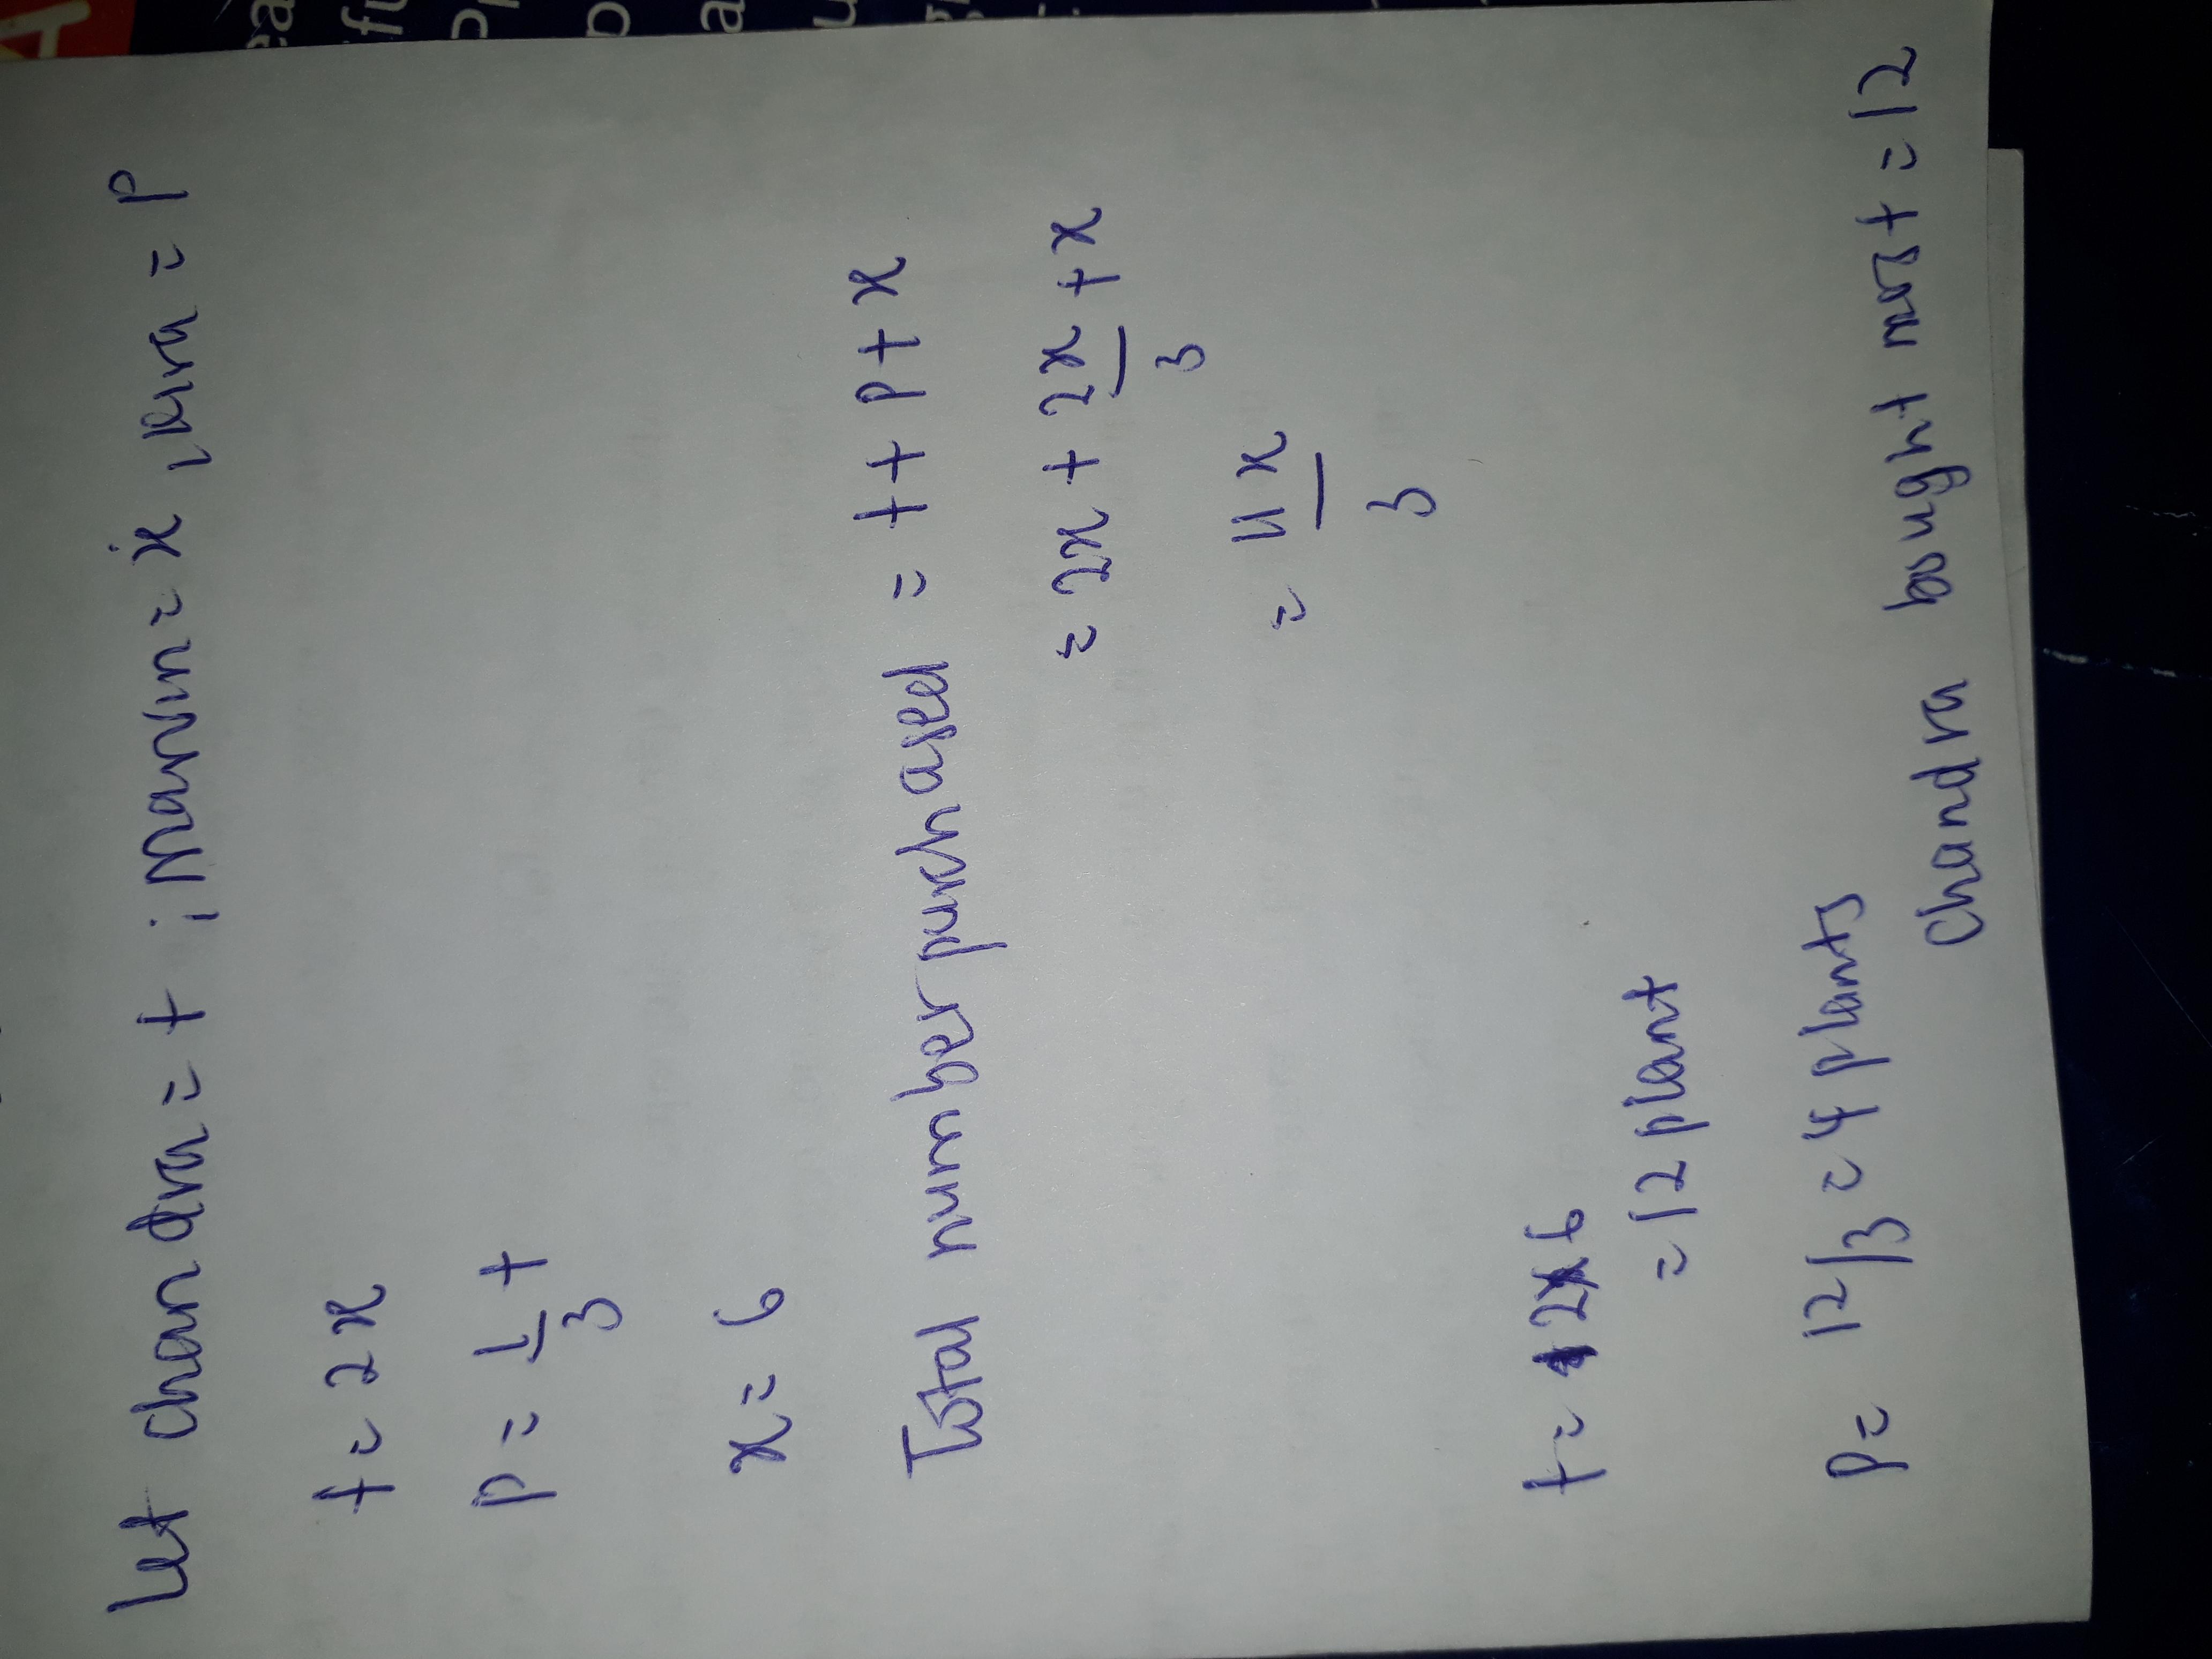 Let chandra = t ; Marvin = x , Lara = P
t = 2x
P = 1/3 t
x = 6
Total number purchased = t + P + x
= 2x + 2x/3 + x
= 11x/3
t = 2x6
= 12 plant
P = 12/3 = 4 plants
Chandra bought most = 12